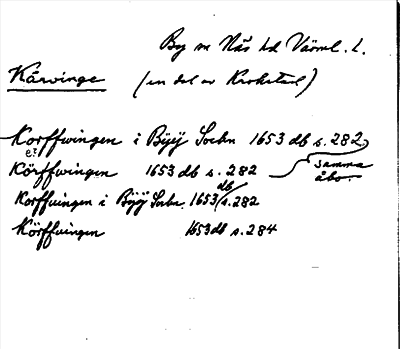 By m Nås hd Värml. l.
Kårvinge (en del av Krokstad)
Korffwingen i Byÿ Sockn 1653 db s. 282
Körffwingen 1653 db s. 282 samma åbo.
Korffuingen i Bÿÿ Sockn. 1653 db s. 282
Körffuingen 1653 db s. 284